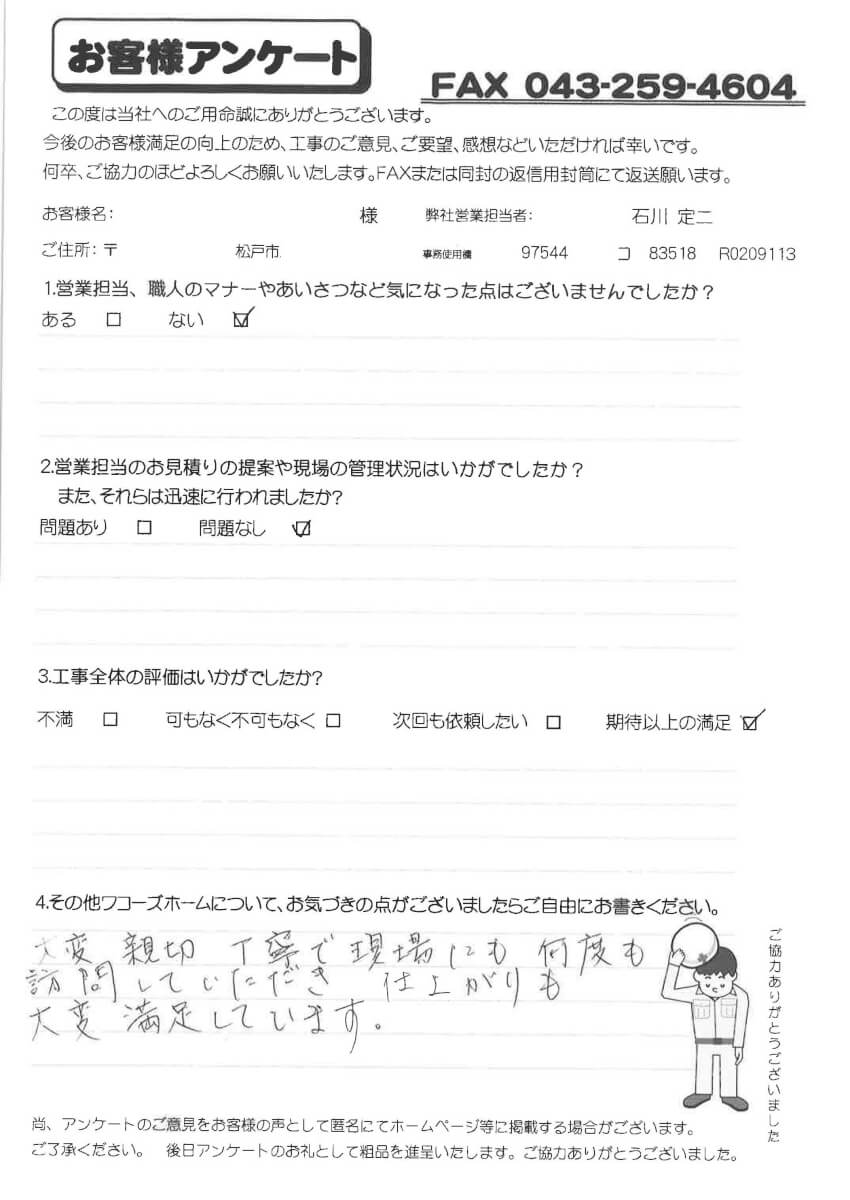 お客様アンケート
FAX 043-259-4604
この度は当社へのご用命誠にありがとうございます。
今後のお客様満足の向上のため、工事のご意見、ご要望、感想などいただければ幸いです。
何卒、ご協力のほどよろしくお願いいたします。FAXまたは同封の返信用封筒にて返送願います。
お客様名: 様 弊社営業担当者: 石川 定二
ご住所: 〒 松戸市 事務使用欄 97544 コ 83518 R0209113
1.営業担当、職人のマナーやあいさつなど気になった点はございませんでしたか?
ある □ ない ☑
2.営業担当のお見積りの提案や現場の管理状況はいかがでしたか?
また、それらは迅速に行われましたか?
問題あり □ 問題なし ☑
3.工事全体の評価はいかがでしたか?
不満 □ 可もなく不可もなく □ 次回も依頼したい □ 期待以上の満足 ☑
4.その他ワコーズホームについて、お気づきの点がございましたらご自由にお書きください。
大変 親切 丁寧で 現場にも 何度も
訪問していただき 仕上がりも
大変 満足しています。
ご協力ありがとうございました
尚、アンケートのご意見をお客様の声として匿名にてホームページ等に掲載する場合がございます。
ご了承ください。 後日アンケートのお礼として粗品を進呈いたします。ご協力ありがとうございました。